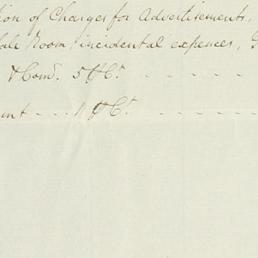 tion of Charges for Advertisements,
Sale Room, incidental expences,
& Com. 5 ₱ Ct. - - - - -
unt - - - 1 ₱ Ct. - - - -